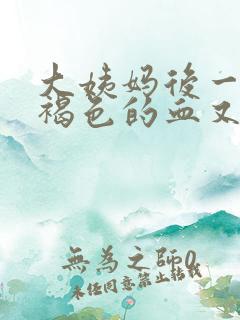 大姨妈後一
褐色的血又
無為之師0
未经同意禁止转载